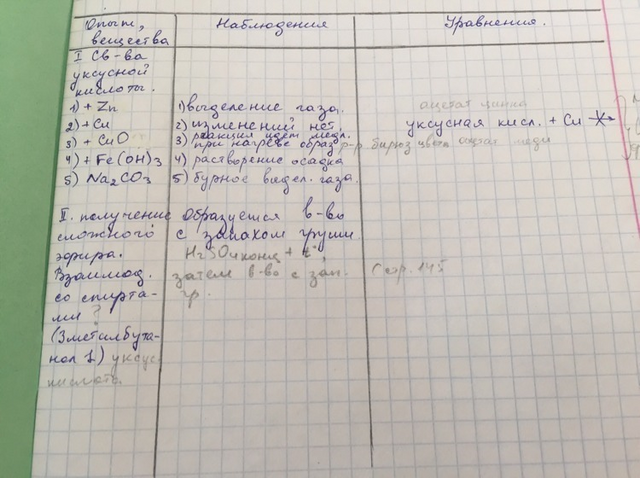 Опыт, вещества
Наблюдения
Уравнения.
I Св-ва
уксусной
кислоты.
1) + Zn
2) + Cu
3) + CuO
4) + Fe(OH)3
5) Na2CO3
1) выделение газа.
2) изменений нет
реакция идет медл.
3) при нагреве образ р-р. бирюз цвета ацетат меди
4) растворение осадка
5) бурное выдел. газа.
ацетат цинка
уксусная кисл. + Cu
II. получение
сложного
эфира.
Взаимод.
со спирта-
ми ?
(3метилбута-
нол 1) уксус.
кислота
Образуется в-во
с запахом груши
H2SO4 конц + t°,
затем в-во с зап.
гр.
Стр. 145